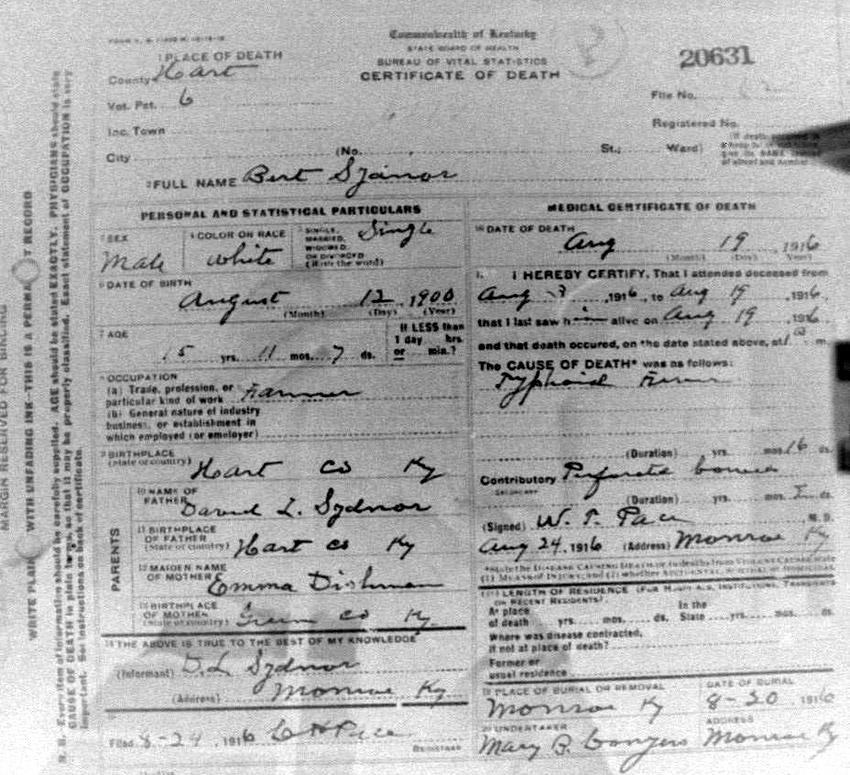 Commonwealth of Kentucky
STATE BOARD OF HEALTH
BUREAU OF VITAL STATISTICS
CERTIFICATE OF DEATH
20631
1 PLACE OF DEATH
County Hart
Vot. Pct. 6
Inc. Town
City (No. St.; Ward)
File No.
Registered No.
2 FULL NAME Bert Sydnor
PERSONAL AND STATISTICAL PARTICULARS
SEX
Male
4 COLOR OR RACE
White
SINGLE, MARRIED, WIDOWED OR DIVORCED (Write the word)
Single
6 DATE OF BIRTH
August 12, 1900
(Month) (Day) (Year)
7 AGE
15 yrs. 11 mos. 7 ds.
If LESS than
1 day hrs.
or min.?
OCCUPATION
(a) Trade, profession, or
particular kind of work Farmer
(b) General nature of industry
business, or establishment in
which employed (or employer)
9 BIRTHPLACE
(State or country) Hart Co Ky
PARENTS
10 NAME OF
FATHER David L. Sydnor
11 BIRTHPLACE
OF FATHER
(State or country) Hart Co Ky
12 MAIDEN NAME
OF MOTHER Emma Dishman
13 BIRTHPLACE
OF MOTHER
(State or country) Co Ky.
14 THE ABOVE IS TRUE TO THE BEST OF MY KNOWLEDGE
(Informant) D.L Sydnor
(Address) Monroe Ky
Filed 8-24, 1916 Pace
REGISTRAR
MEDICAL CERTIFICATE OF DEATH
16 DATE OF DEATH
Aug 19 1916
(Month) (Day) (Year)
I HEREBY CERTIFY, That I attended deceased from
Aug 3, 1916, to Aug 19, 1916,
that I last saw him alive on Aug 19, 1916
and that death occured, on the date stated above, at m.
The CAUSE OF DEATH* was as follows:
Typhoid Fever
(Duration) yrs. mos. 16 ds.
Contributory
SECONDARY
(Duration) yrs. mos. ds.
(Signed) W. T. Pace M. D.
Aug 24, 1916 (Address) Monroe Ky
LENGTH OF RESIDENCE
OR RECENT RESIDENTS)
At place
of death yrs. mos. ds.
In the
State yrs. mos. ds.
Where was disease contracted,
if not at place of death?
Former or
usual residence
19 PLACE OF BURIAL OR REMOVAL
Monroe Ky
DATE OF BURIAL
8-20 1916
20 UNDERTAKER
Mary B. Conyers
ADDRESS
Monroe Ky
MARGIN RESERVED FOR BINDING
N. B. Every item of information should be carefully supplied. AGE should be stated EXACTLY. PHYSICIANS should state
CAUSE OF DEATH in plain terms, so that it may be properly classified. Exact statement of OCCUPATION is very
important. See instructions on back of certificate.